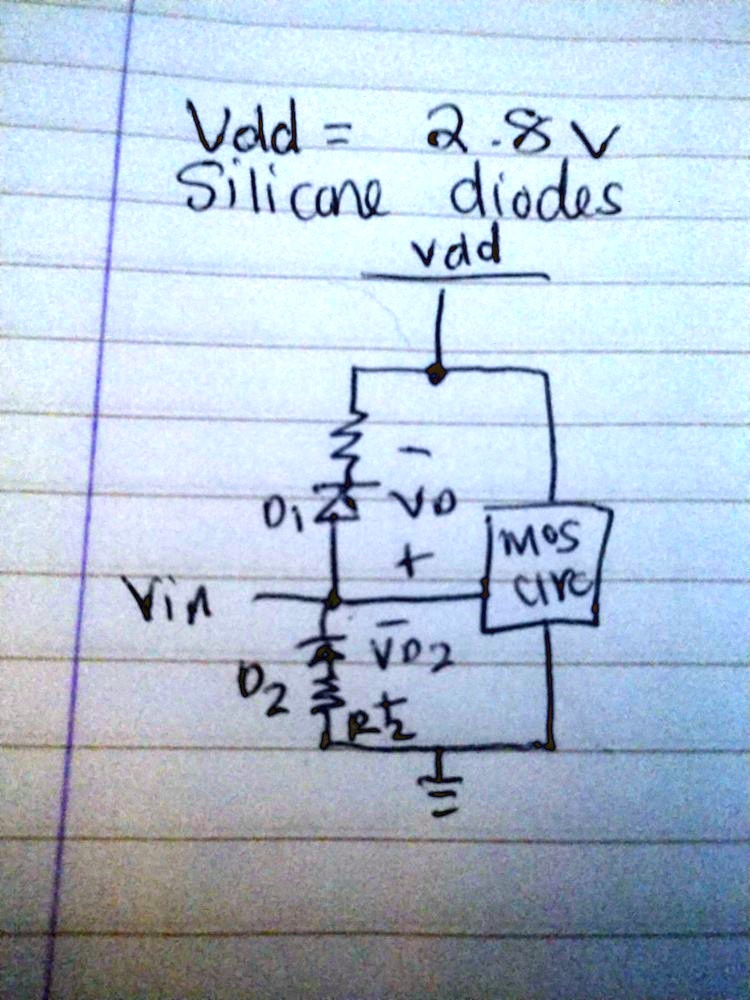 Vdd = 2.8 V
Silicone diodes
Vdd
-
D1 VD
+
MOS
circ
Vin
-
VD2
D2
+
R2